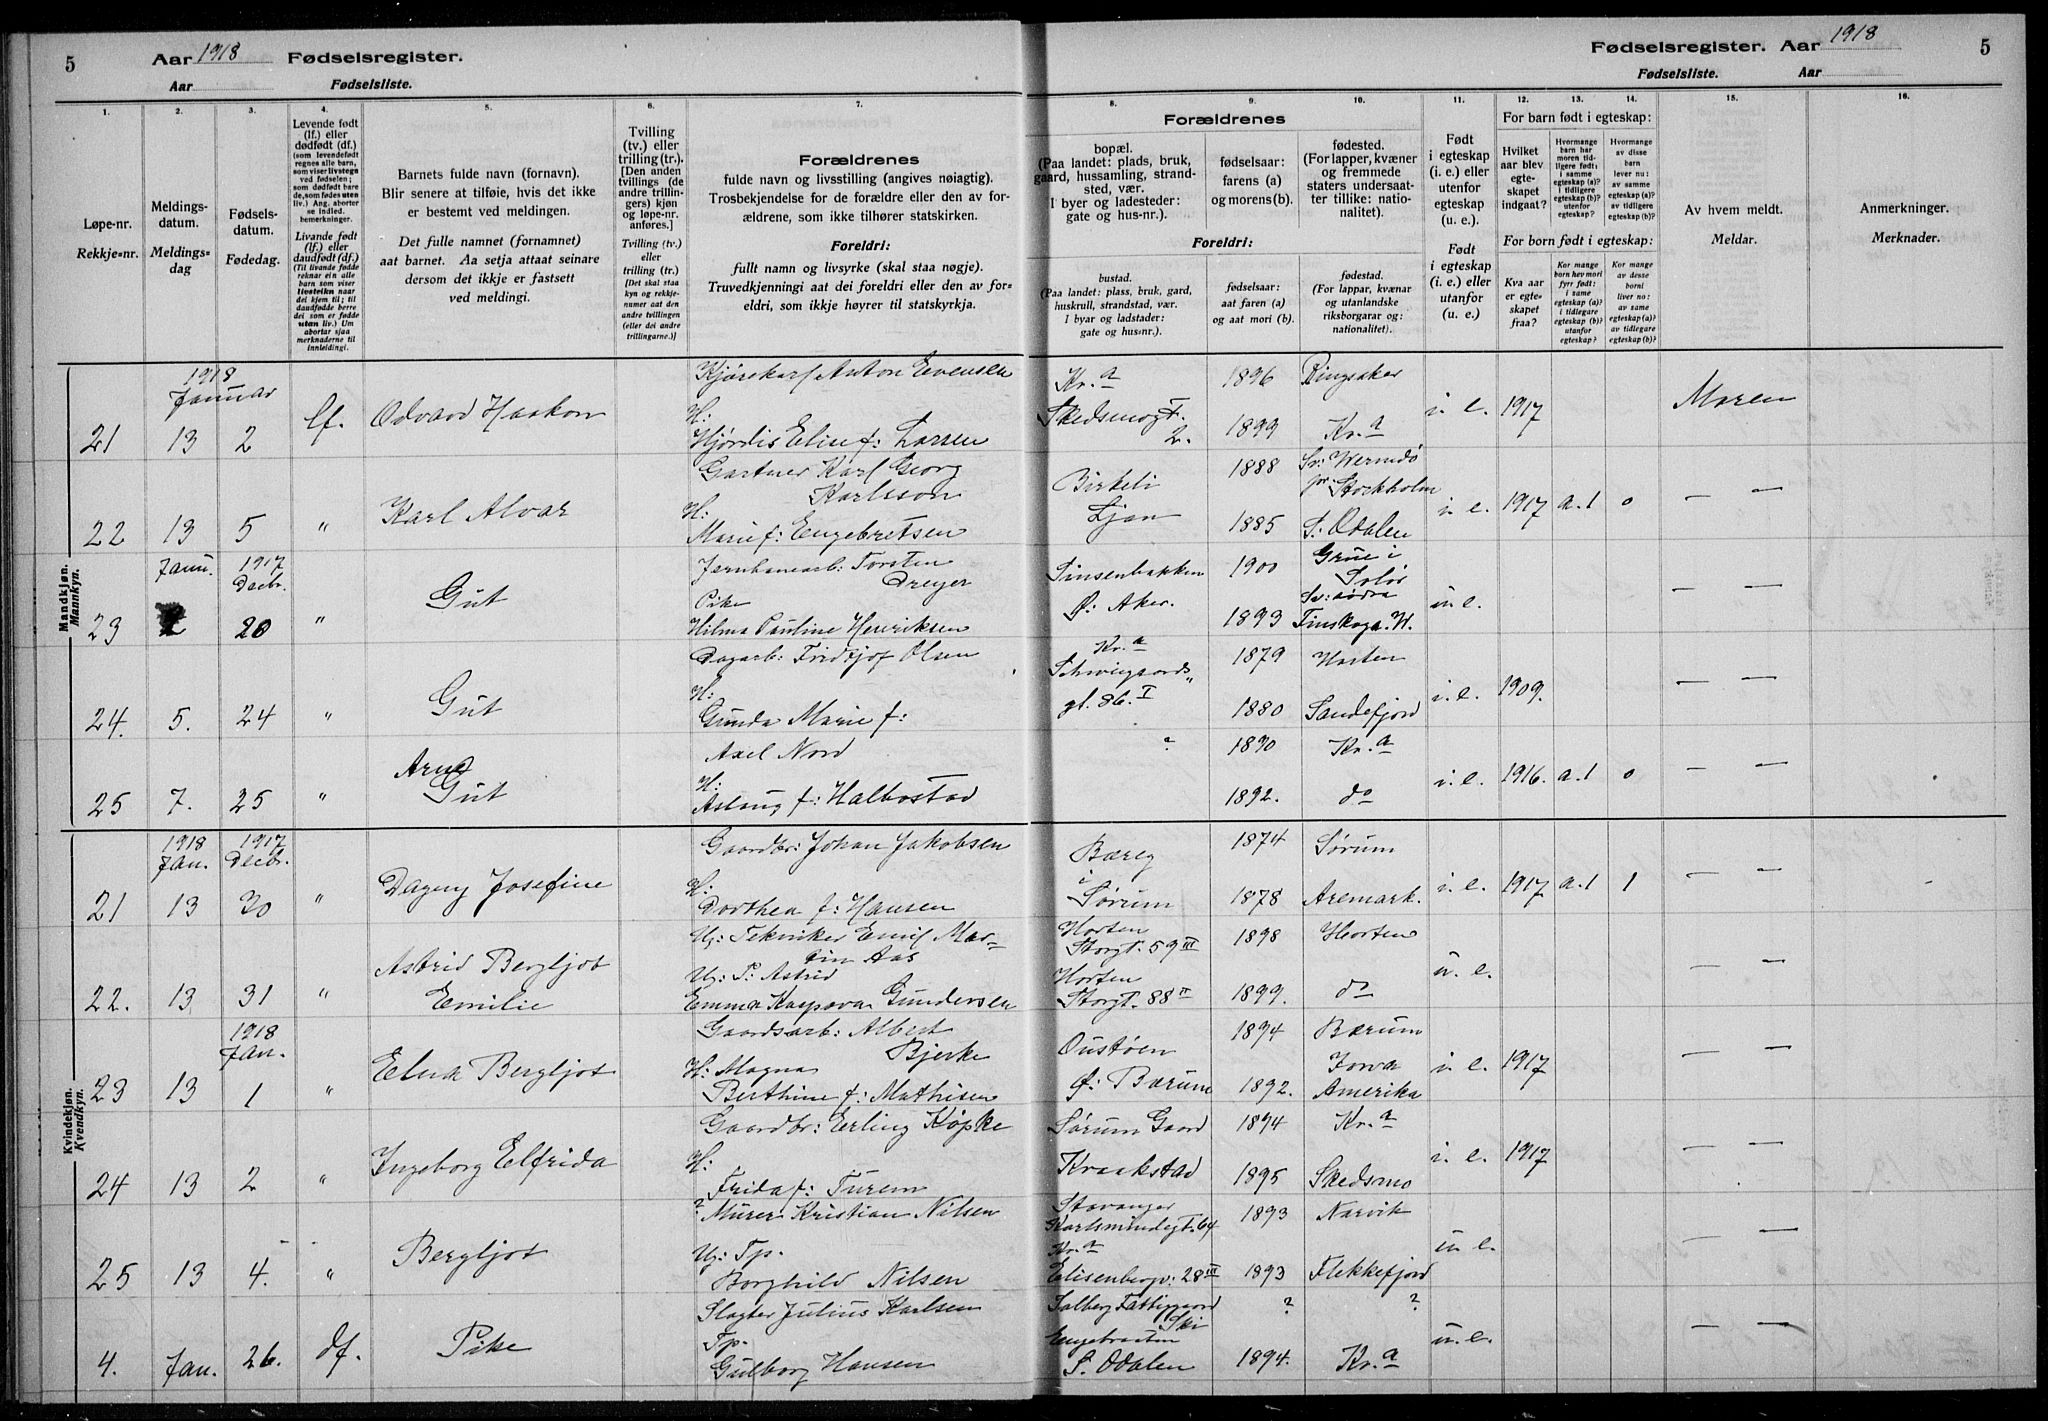 5
Aar 1918 Fødselsregister.
Aar Fødselsliste.
1918
Fødselsregister. Aar
5
Fødselsliste. Aar
1.
2.
3.
4.
5.
6.
7.
8.
9.
10.
11.
12.
13.
14.
15.
16.
Løpe-nr.
Rekkje-nr.
Meldings-
datum.
Meldings-
dag
Fødsels-
datum.
Fødedag.
Levende født
(lf.) eller
dødfødt (df.)
(som levendefødt
regnes alle barn,
som viser livstegn
ved fødselen;
som dødfødt bare
de, som fødes uten
liv.) Ang. aborter
se indled.
bemerkninger.
Livande født
(lf.) eller
daudfødt (df.)
(Til livande fødde
reknar ein alle
born som viser
livsteikn naar
dei kjem til; til
daudfødde berre
dei som er fødde
utan liv.) Um
abortar sjaa
merknaderne til
innleidingi.
Barnets fulde navn (fornavn).
Blir senere at tilføie, hvis det ikke
er bestemt ved meldingen.
Det fulle namnet (fornamnet)
aat barnet. Aa setja attaat seinare
dersom det ikkje er fastsett
ved meldingi.
Tvilling
(tv.) eller
trilling (tr.).
[Den anden
tvillings (de
andre trillin-
gers) kjøn
og løpe-nr.
anføres.]
Tvilling (tv.)
eller
trilling (tr.)
[Det skal staa
kyn og rekkje-
numer aat den
andre tvillingen
(eller dei andre
trillingarne.)]
Forældrenes
fulde navn og livsstilling (angives nøiagtig).
Trosbekjendelse for de forældre eller den av for-
ældrene, som ikke tilhører statskirken.
Foreldri:
fullt namn og livsyrke (skal staa nøgje).
Truvedkjenningi aat dei foreldri eller den av for-
eldri, som ikkje høyrer til statskyrkja.
Forældrenes
bopæl.
(Paa landet: plads, bruk,
gaard, hussamling, strand-
sted, vær.
I byer og ladesteder:
gate og hus-nr.).
fødselsaar:
farens (a)
og morens (b).
fødested.
(For lapper, kvæner
og fremmede
staters undersaat-
ter tillike: natio-
nalitet).
Foreldri:
bustad.
(Paa landet: plass, bruk, gard,
huskrull, strandstad, vær.
I byar og ladstader:
gate og hus-nr.).
fødselsaar:
aat faren (a)
og aat mori (b).
fødestad.
(For lappar, kvænar
og utanlandske
riksborgarar og:
nationalitet).
Født
i egteskap
(i. e.) eller
utenfor
egteskap
(u. e.).
Født
i egteskap
(i. e.) eller
utanfor
(u. e.).
For barn født i egteskap:
Hvilket
aar blev
egte-
skapet
indgaat?
Hvormange
barn har
moren tid-
ligere født:
i samme
egteskap (a)?
i tidligere
egteskap (b)?
utenfor
egteskap?
Hvormange
av disse
barn
lever nu:
av samme
egteskap (a)?
av tidligere
egteskap (b)?
For born født i egteskap:
Kva aar
er egte-
skapet
fraa?
Kor mange
born hev mori
fyrr født:
i same
egteskap (a)?
i tidlegare
egteskap (b)?
utanfor
egteskap?
Kor mange
av desse
borni
liver no:
av same
egteskap (a)?
av tidlegare
egteskap (b)?
Av hvem meldt.
Meldar.
Anmerkninger.
Merknader.
Mandkjøn.
Mannkyn.
1918
Januar
21 13 2 lf. Odvard Haakon
Kjørekarl Anton Evensen
H:
Hjørdis Elise f: Larsen
Kr.a
Skedsmogt.
2.
1896 Ringsaker
1899 Kr.a
i. e. 1917 Moren
22 13 5 " Karl Alvar
Gartner Karl Georg
Karlsson
H:
Marie f: Engebretsen
Birkeli
Ljan
1888 Sv: Wermdø
pr Stockholm
1885 S. Odalen
i. e. 1917 a.1 0 — —
Janu. 1917
Decbr.
23 2 20 " Gut
Jernbanearb: Torsten
Dreyer
Pike
Hilma Pauline Henriksen
Sinsenbakken
Ø: Aker.
1900 Grue i
Solør
1893 Sv: södra
Finskoga. W.
u. e. — —
24. 5. 24 " Gut
Dagarb: Fridtjof Olsen
H:
Gunda Marie f:
Kr.a
Schweigaards
gt. 86. I
1879 Horten
1880 Sandefjord
i. e. 1909. — —
25 7. 25 " Arne
Gut
Axel Nord
H:
Aslaug f: Halbostad
?
1890 Kr.a
1892. do
i. e. 1916. a.1 0 — —
Kvindekjøn.
Kvendkyn.
1918 1917
Jan. Decbr.
21 13 30 " Dagny Josefine
Gaardbr: Johan Jakobsen
H:
Dorthea f: Hansen
Bæreg
i
Sørum
1874 Sørum
1878 Aremark.
i. e. 1917 a.1 1 — —
22. 13 31 " Astrid Bergljot
Emilie
Ug: Tekniker Emil Mar-
tin Aas
Ug: P: Astrid
Emma Kaspara Gundersen
Horten
Storgt. 59 III
Horten
Storgt. 88 II
1898 Horten
1899. do
u. e. — —
1918
Jan.
23 13 1 " Elna Bergljot
Gaardsarb: Albert
Bjerke
H: Magna
Berthine f: Mathisen
Oustøen
Ø: Bærum
1894 Bærum
1892. Jowa
Amerika
i. e. 1917 — —
24 13 2 " Ingeborg Elfrida
Gaardbr: Erling Köpke
H:
Frida f: Turem
Sørum Gaard
Kraakstad
1894 Kr.a
1895 Skedsmo
i. e. 1917 — —
25 13 4. " Bergljot
? Murer Kristian Nilsen
Ug: Tp.
Borghild Nilsen
Stavanger
Karlsmindegt. 64
Kr.a
Elisenbergv: 28 III
1893 Narvik
1893 Flekkefjord
u. e. — —
4. Jan. 26. df. Pike
Slagter Julius Karlsen
Tp.
Gulborg Hansen
Solberg Fattiggaard
Ski
Engebraaten
S. Odalen
? ?
1894. Kr.a
u. e. — —